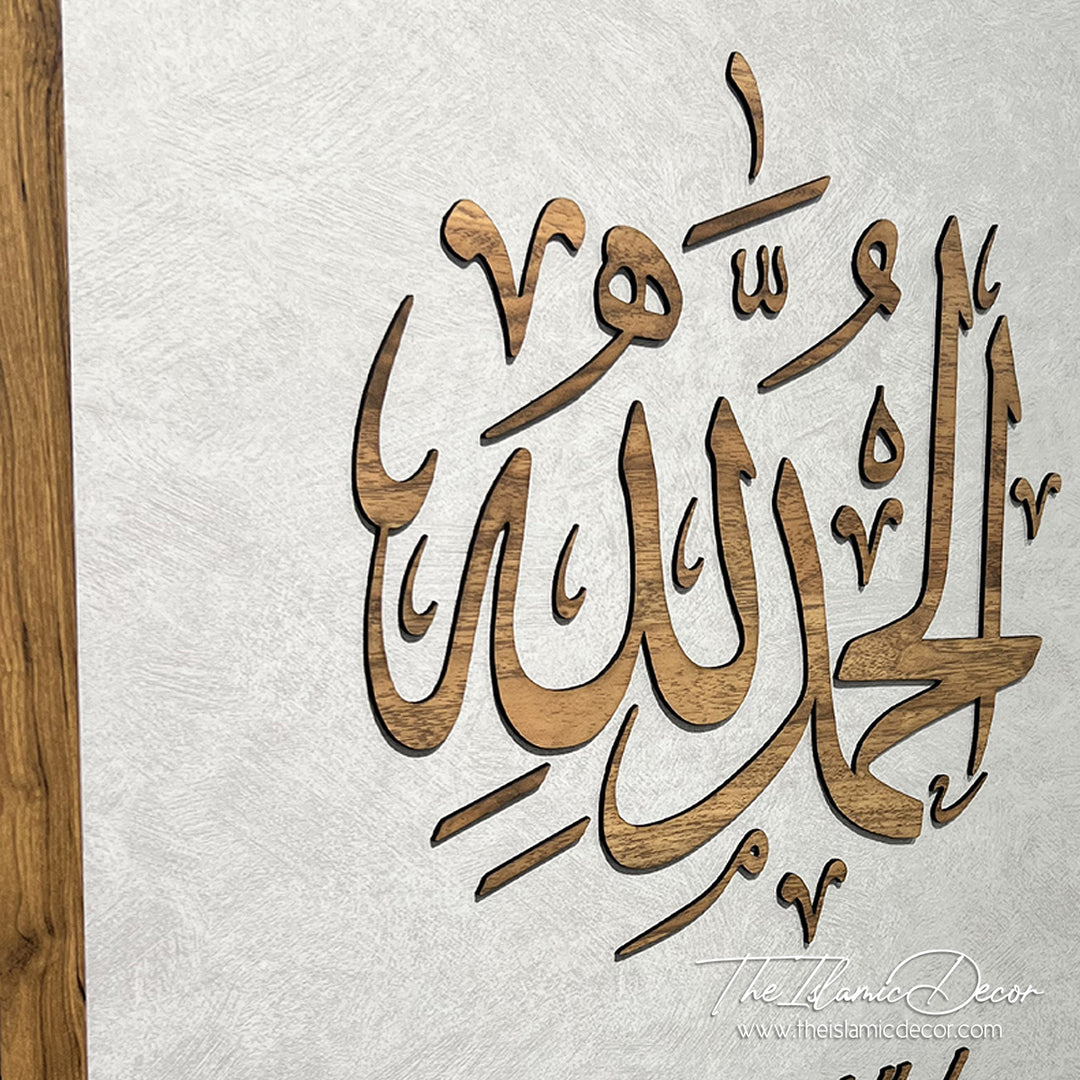 الْحَمْدُ لِلَّهِ
The Islamic Decor
www.theislamicdecor.com